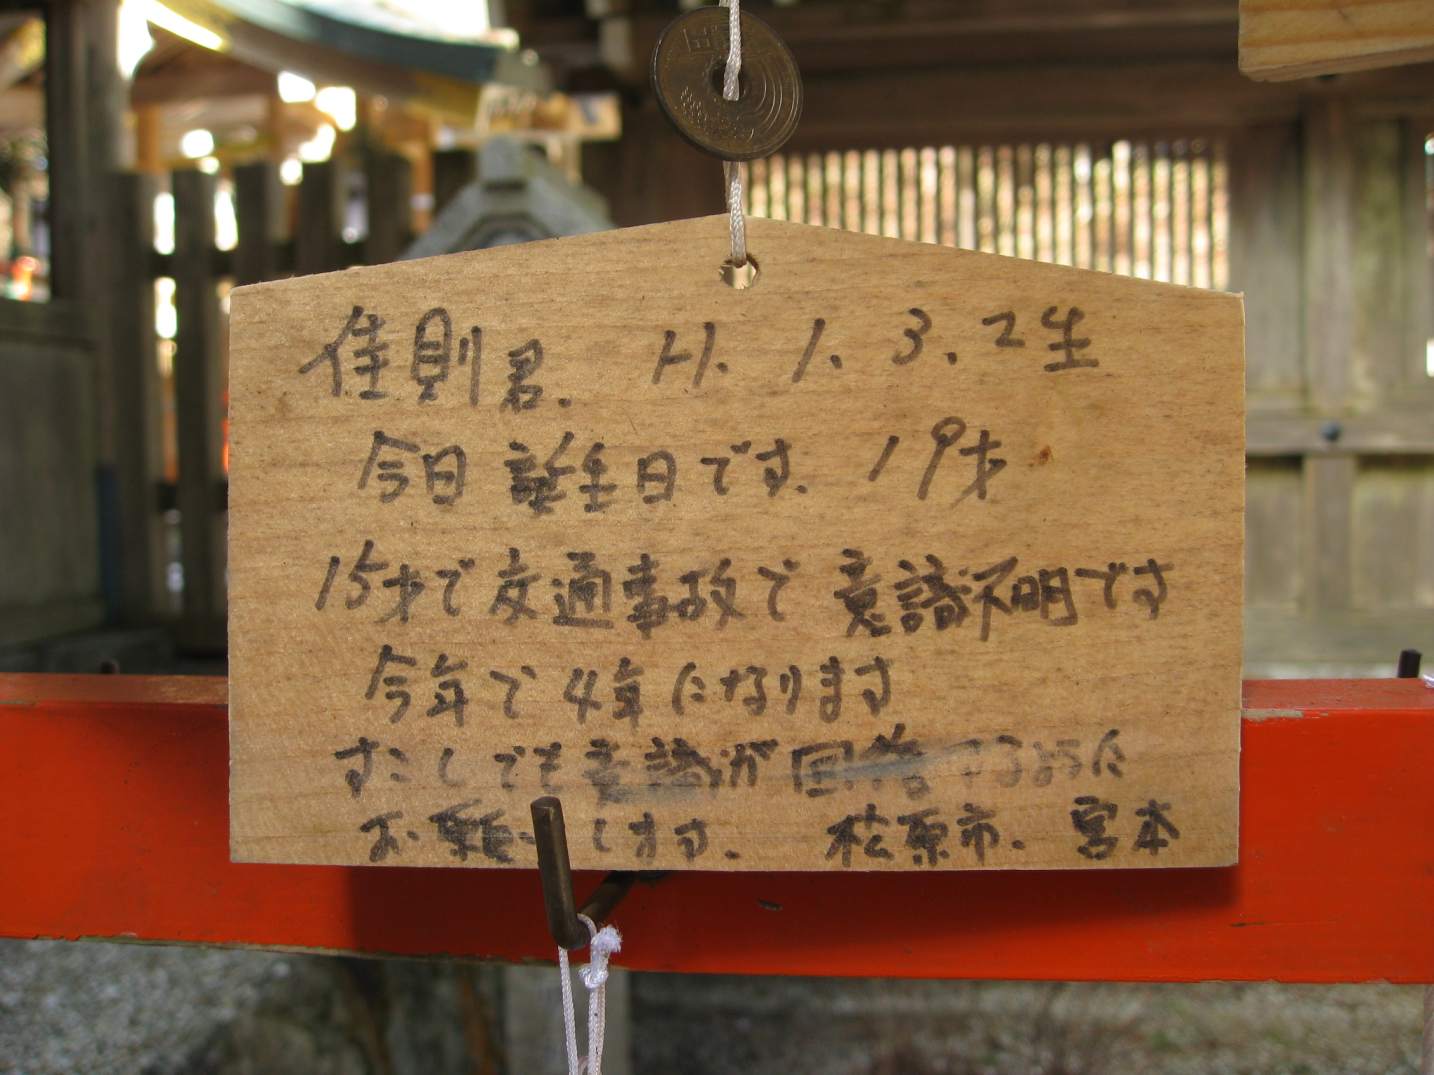 佳則君. H. 1. 3. 2生
今日 誕生日です. 19才
15才で交通事故で 意識不明です
今年で 4年になります
すこしでも意識が回復するように
お願いします. 松原市. 宮本